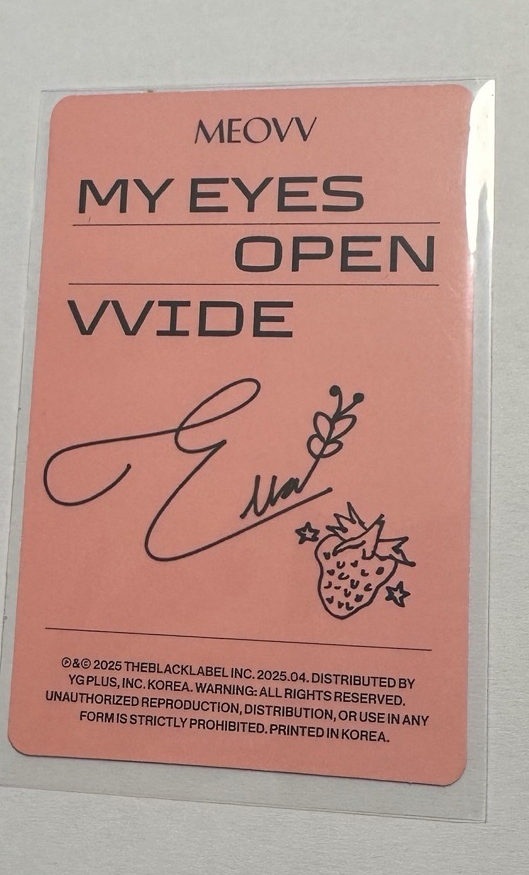 MEOVV
MY EYES
OPEN
VVIDE
Ella
℗&© 2025 THEBLACKLABEL INC. 2025.04. DISTRIBUTED BY
YG PLUS, INC. KOREA. WARNING: ALL RIGHTS RESERVED.
UNAUTHORIZED REPRODUCTION, DISTRIBUTION, OR USE IN ANY
FORM IS STRICTLY PROHIBITED. PRINTED IN KOREA.